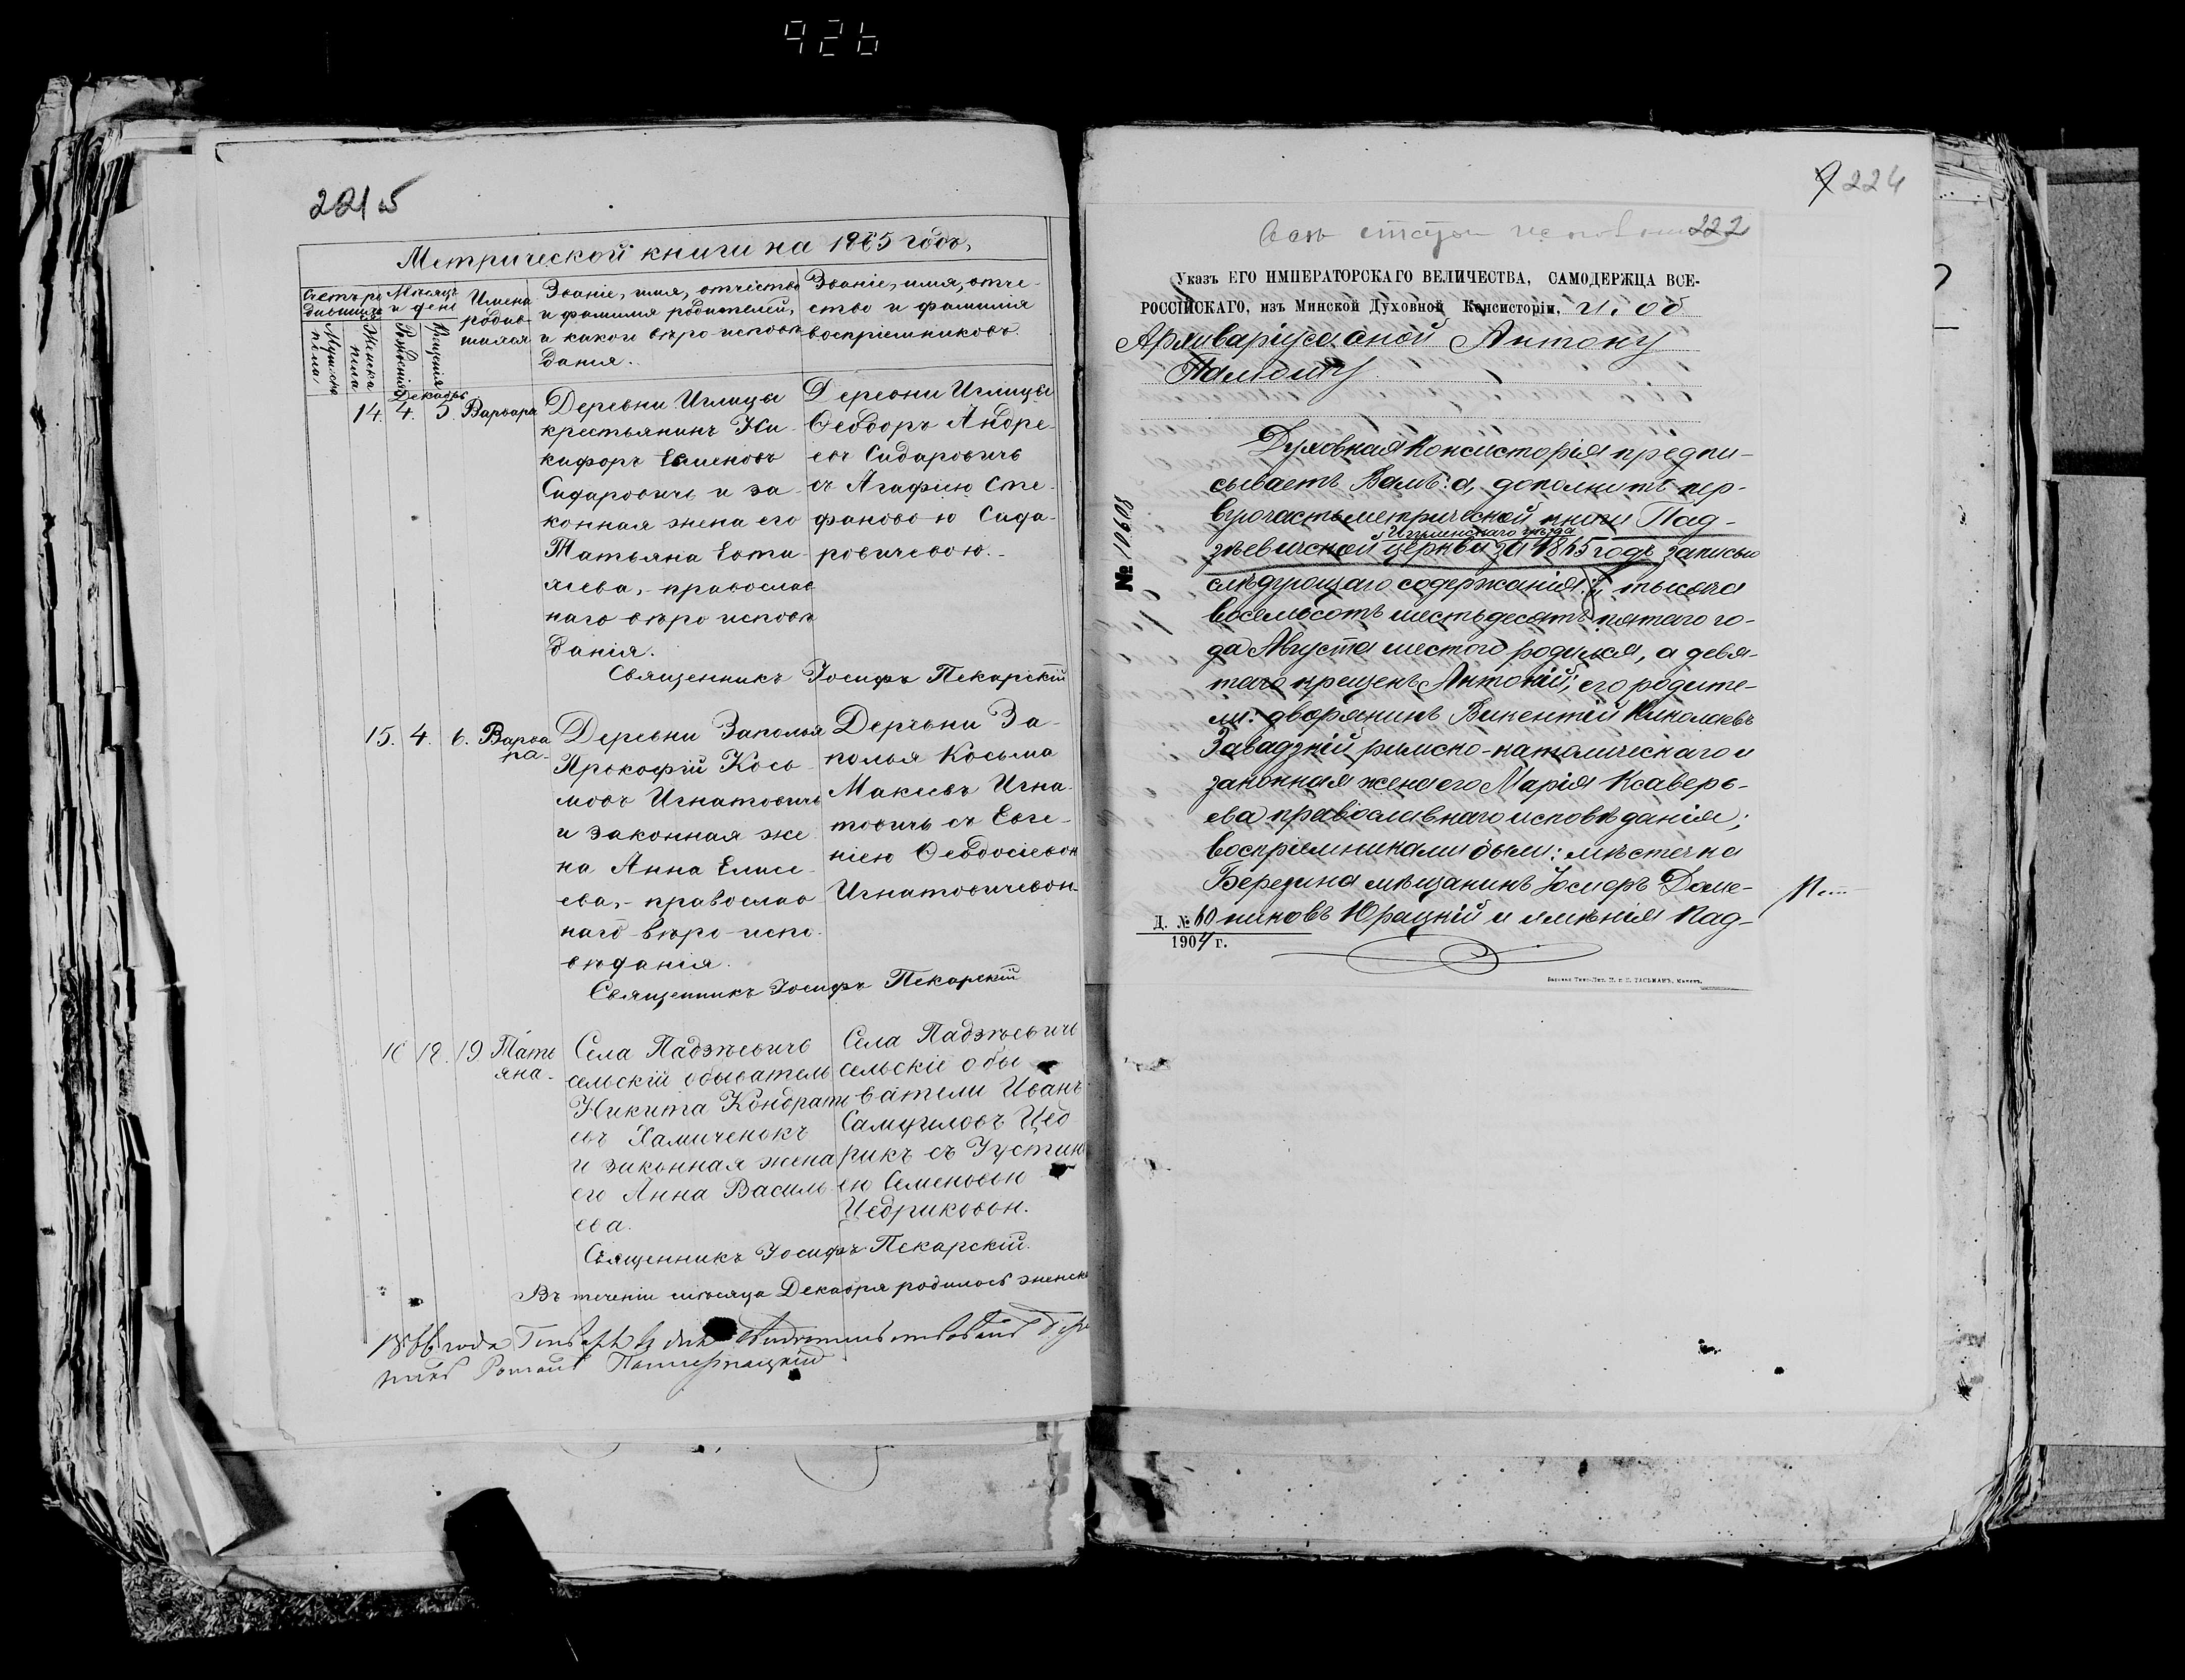 926
2215
Метрической книги на 1865 годъ,
Счетъ ро
дившихся
Мужеска
пола
Женска
пола
Мѣсяцъ
и день
Рожденія
Крещенія
Имена
родив
шихся
Званіе, имя, отчество
и фамилія родителей,
и какого вѣро исповѣ
данія.
Званіе, имя, отче-
ство и фамилія
воспріемниковъ.
Декабрь
14. 4. 5. Варвара
Деревни Иглицы
крестьянинъ Ни-
кифоръ Семеновъ
Сидаровичъ и за-
конная жена его
Татьяна Евти-
хіева, - православ
наго вѣро исповѣ
данія.
Деревни Иглицы
Ѳеодоръ Андре-
евъ Сидаровичъ
съ Агафіею Сте-
фановою Сида-
ровичевою.-
Священникъ Іосифъ Пекарскій
15. 4. 6. Варва
ра-
Деревни Заполья
Прокофій Кось-
мовъ Игнатовичъ
и законная же
на Анна Елисе-
ева, - православ
наго вѣро-испо-
вѣданія.
Деревни За-
полья Косьма
Макеевъ Игна-
товичъ съ Евге-
ніею Ѳеодосіевой
Игнатовичевой-
Священникъ Іосифъ Пекарскій
16 18. 19 Тать
яна-
Села Падзѣевичъ
сельскій обыватель
Никита Кондрати
евъ Хамиченокъ
и законная жена
его Анна Василь-
ева.
Села Падзѣевичъ
сельскіе обы
ватели Иванъ
Самуиловъ Цед
рикъ съ Іустин
ею Семеновою
Цедриковой.
Священникъ Іосифъ Пекарскій.
Въ теченіи мѣсяца Декабря родилось женска
1866 года
224
222
Указъ ЕГО ИМПЕРАТОРСКАГО ВЕЛИЧЕСТВА, САМОДЕРЖЦА ВСЕ-
РОССІЙСКАГО, изъ Минской Духовной Консисторіи, И. об
Архиваріуса оной Антону
Духовная Консисторія предпи-
сываетъ Вамъ: а, дополнить пер-
вую часть метрической книги Пад-
Игуменскаго уѣзда
зѣевичской церкви за 1865 годъ записью
слѣдующаго содержанія: „тысяча
восемьсотъ шестьдесятъ пятаго го-
да Августа шестого родился, а девя-
таго крещенъ Антоній; его родите-
ли: дворянинъ Викентій Николаевъ
Завадзкій римско-католическаго и
законная жена его Марія Ксаверь-
ева православнаго исповѣданія;
воспріемниками были: мѣстечка
Березина мѣщанинъ Іосифъ Доме-
никовъ Юрацкій и имѣнія Пад-
№ 10918
Д. № 60
1904 г.